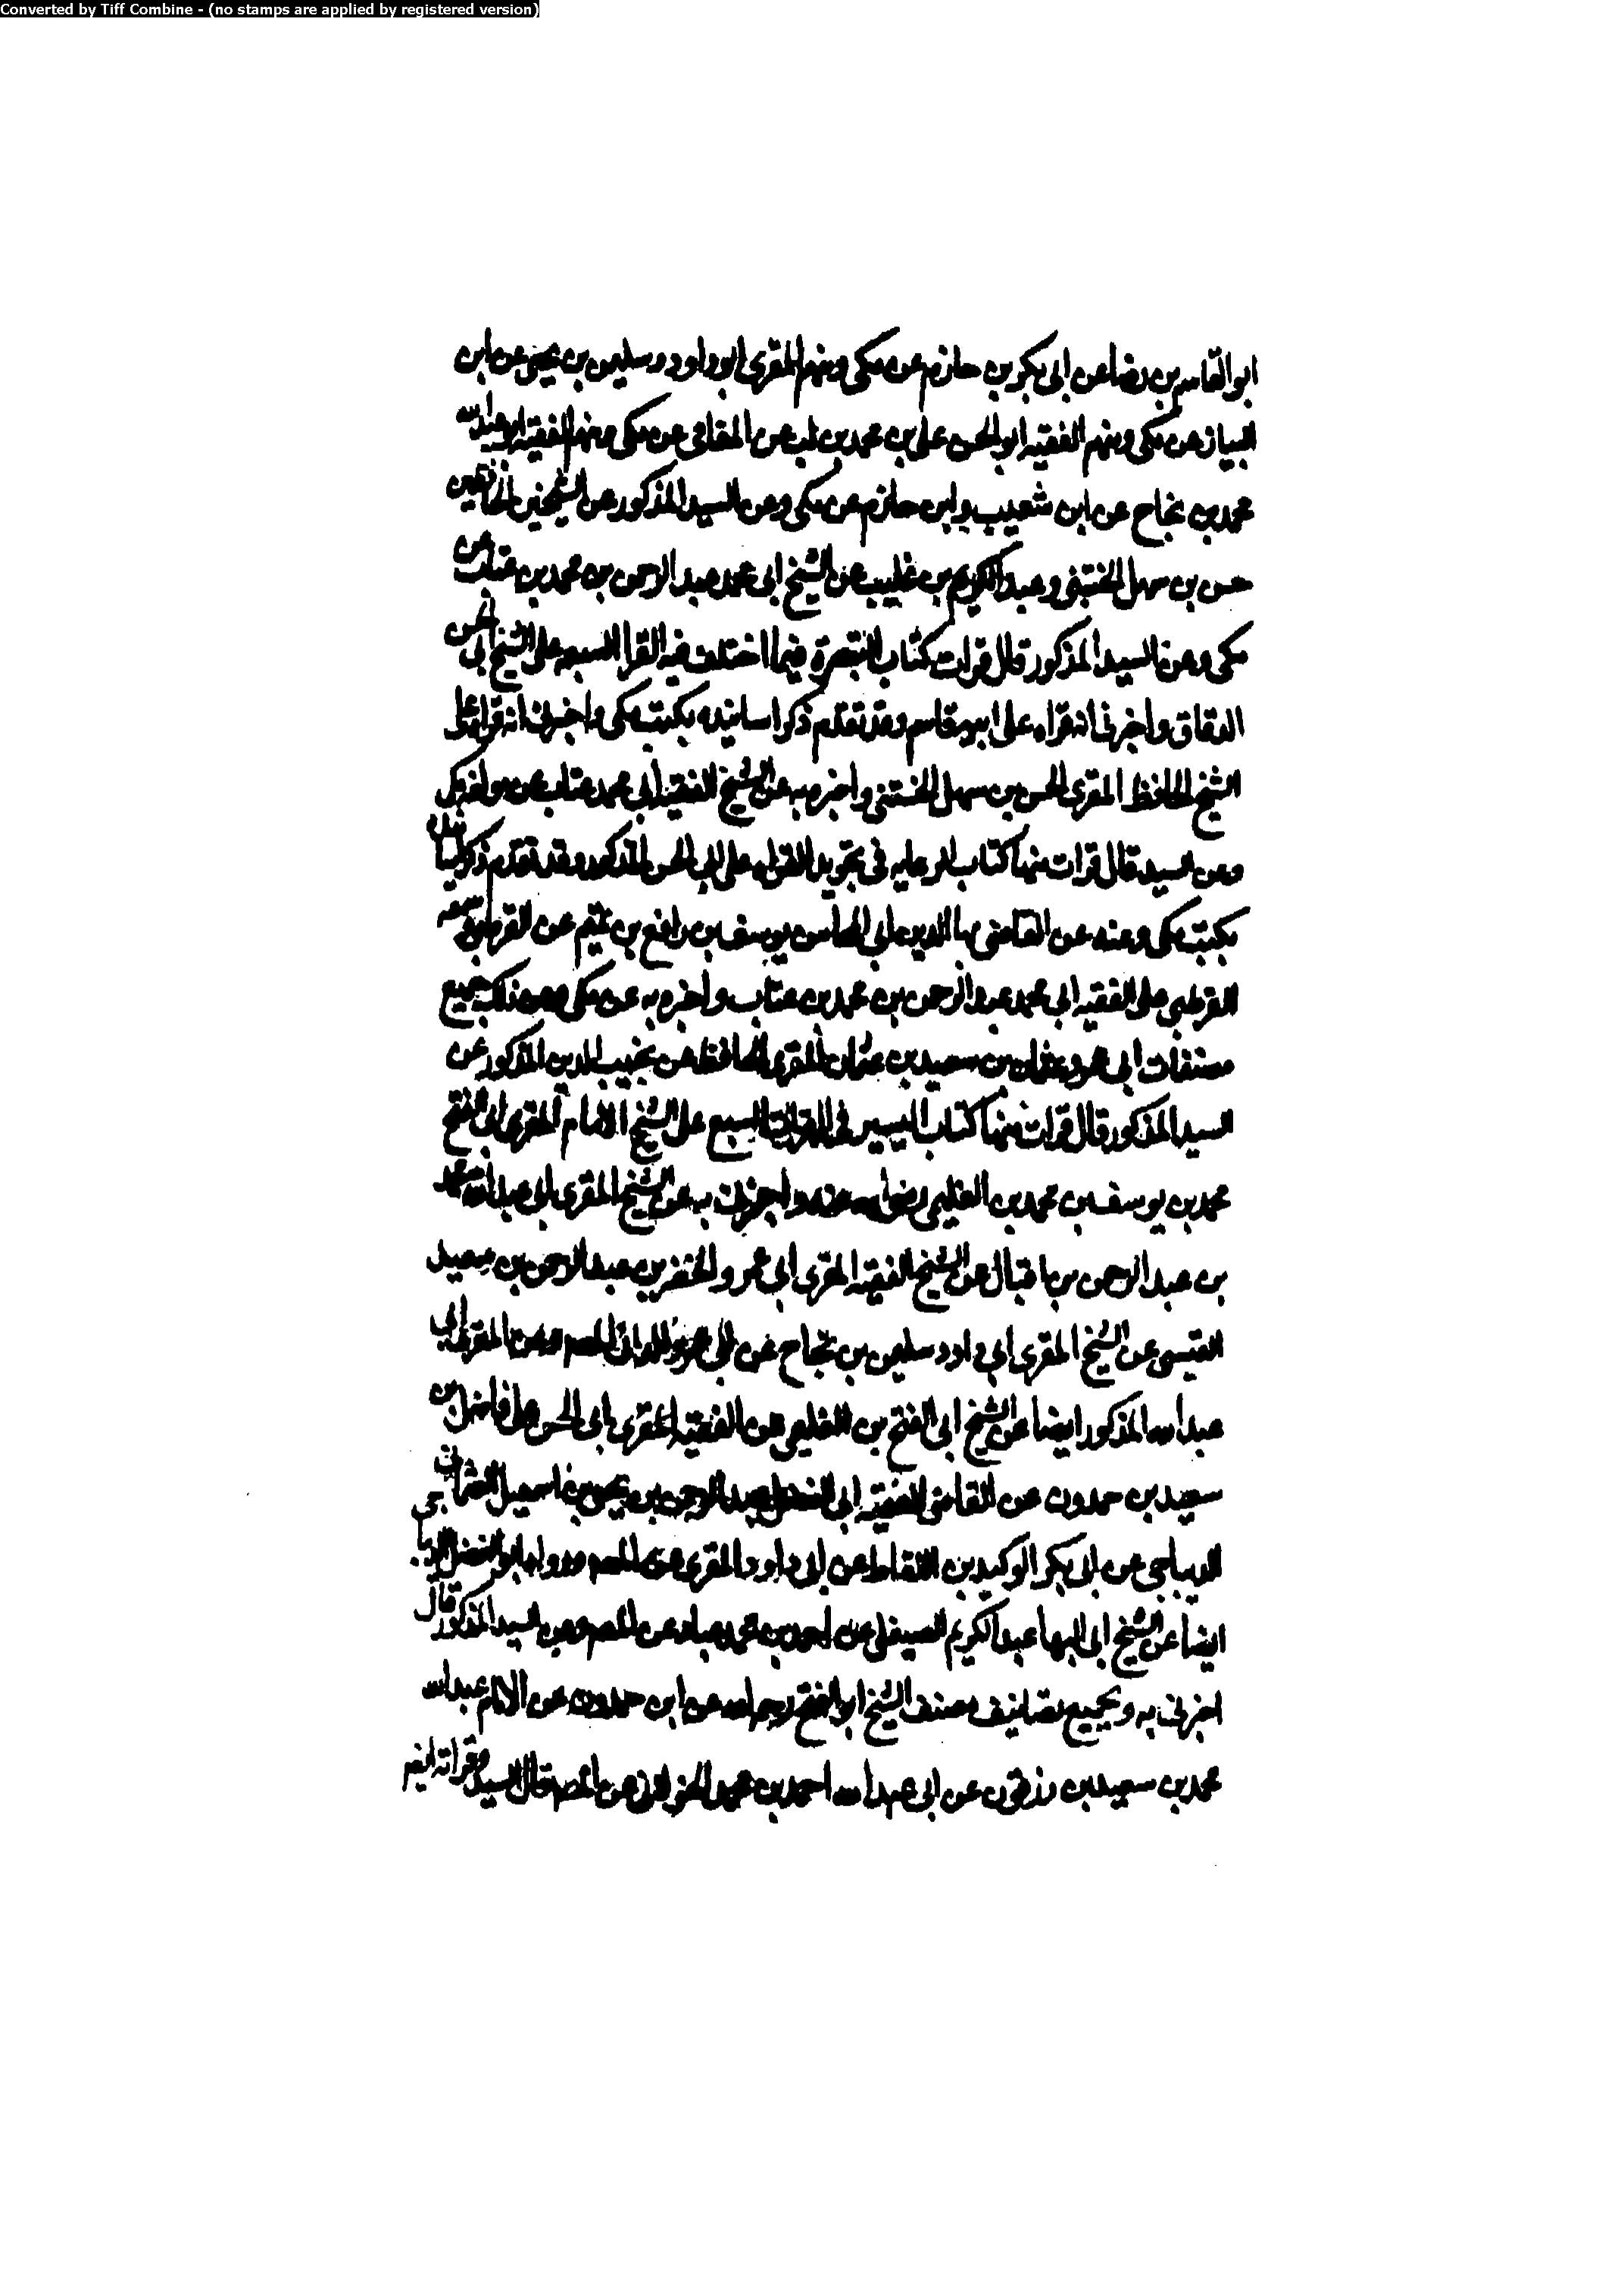 Converted by Tiff Combine - (no stamps are applied by registered version)
ابو القاسم بن رضا عن ابى بكر بن حازم عن مكى ومنهم المقرى ابو داود وسليمن بن يحيى عن ابن
البياز عن مكى ومنهم الفقيه ابو الحسن على بن محمد بن لب عن المقامى عن مكى ومنهم الفقيه ابو عبد الله
محمد بن نجاح عن ابن شعيب وابن حازم عن مكى وعن السيد المذكور عن الشيخين الحافظين
حسن بن سهل الخشنى وعبد الكريم بن غليب عن الشيخ ابى محمد عبد الرحمن بن محمد بن عتاب عن
مكى وعن السيد المذكور قال قرات كتاب التبصرة فيما اختلف فيه القرا السبعه على الشيخ ابى الحسن
الدقاق واخبرنى انه قراه على ابيه قاسم وقد تقدم ذكر اسانيده بكتب مكى واخبرنى انه قراه على
الشيخ الحافظ المقرى الحسن بن سهل الخشنى واخبره به عن الشيخ الفقيه ابى محمد عتاب عن مولفه مكى
وعن السيد قال قرات منها كتاب الرعايه فى تجويد القراه على ابى الحسن المذكور وقد تقدم ذكر
بكتب مكى وعنه عن القاضى بها الدين ابى المحاسن يوسف بن رافع بن تميم عن القرطبى
القرطبى على الفقيه ابى محمد عبد الرحمن بن محمد بن عتاب واخبره به عن مكى ومن ذلك جميع
مصنفات ابى عمرو عثمان بن سعيد بن عثمان المقرى الحافظ عن نجيب الدين المذكور عن
السيد المذكور قال قرات منها كتاب التيسير فى القراات السبع على الشيخ الامام المقرى ابى الفتح
محمد بن يوسف بن محمد بن العليمى رضى الله عنه واخبرنى به عن الشيخ المقرى ابى عبد الله محمد
بن عبد الرحمن بن اقبال عن الشيخ الفقيه المقرى ابى عمرو الخضر بن عبد الرحمن بن سعيد
القيسى عن الشيخ المقرى ابى داود سليمن بن نجاح عن ابى عمرو الدانى المصنف وعن المقرى ابى
عبد الله المذكور ايضا عن الشيخ ابى الفتح بن العليمى عن الفقيه المقرى ابى الحسن على فاضل بن
سعيد بن حمدون عن القاضى الفقيه ابى الفضل عبد الرحمن بن يحيى بن اسمعيل العثمانى
الديباجى عن ابى بكر الوكيد بن اللقاط عن ابى داود المقرى عن المصنف ورواه ابو الفضل الديباجى
ايضا عن الشيخ ابى البها عبد الكريم الصيقلى عن احمد بن محمد عن المصنف وعن السيد المذكور قال
اخبرنى به وبجميع تصانيف مصنف الشيخ ابو الفتح رحمه الله عن ابن حمدون عن الامام عبد الله
محمد بن سعيد بن زرقون عن ابى عبد الله احمد بن محمد الخولانى عن المصنف قال السيد وقراته